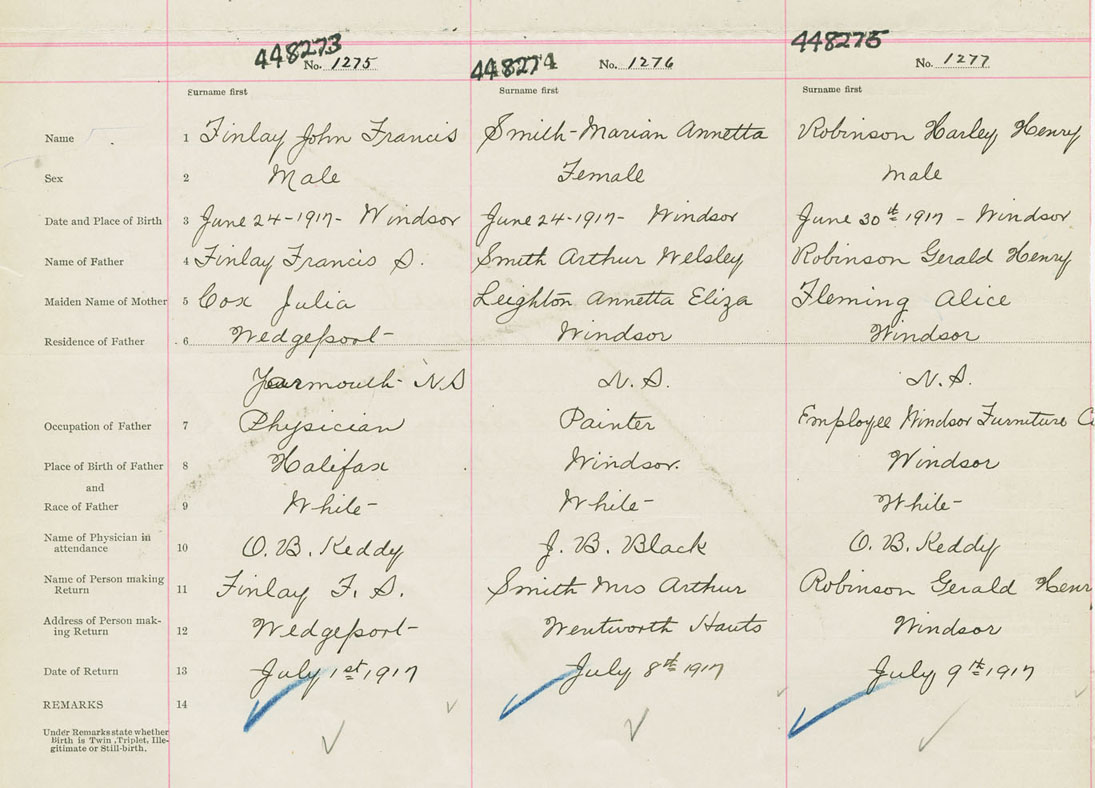 448273 No. 1275 448274 No. 1276 448275 No. 1277
Surname first Surname first Surname first
Name 1 Finlay John Francis Smith-Marian Annetta Robinson Harley Henry
Sex 2 Male Female Male
Date and Place of Birth 3 June 24-1917- Windsor June 24-1917- Windsor June 30th 1917 - Windsor
Name of Father 4 Finlay Francis S. Smith Arthur Welsley Robinson Gerald Henry
Maiden Name of Mother 5 Cox Julia Leighton Annetta Eliza Fleming Alice
Residence of Father 6 Wedgeport- Windsor Windsor
Yarmouth- NS N.S. N.S.
Occupation of Father 7 Physician Painter Employee Windsor Furniture Co
Place of Birth of Father 8 Halifax Windsor. Windsor
and
Race of Father 9 White- White- White-
Name of Physician in
attendance 10 O. B. Keddy J. B. Black O. B. Keddy
Name of Person making
Return 11 Finlay F. S. Smith Mrs Arthur Robinson Gerald Henr
Address of Person mak-
ing Return 12 Wedgeport- Wentworth Hants Windsor
Date of Return 13 July 1st 1917 July 8th 1917 July 9th 1917
REMARKS 14
Under Remarks state whether
Birth is Twin, Triplet, Ille-
gitimate or Still-birth.